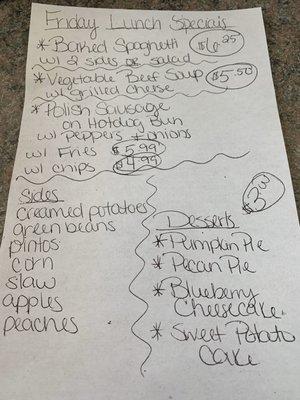 Friday Lunch Specials
* Baked Spaghetti $6.25
w/ 2 sides or salad
* Vegetable Beef Soup $5.50
w/ grilled cheese
* Polish Sausage
on Hotdog Bun
w/ peppers & onions
w/ Fries $5.99
w/ chips $4.99
Sides
creamed potatoes
green beans
pintos
corn
slaw
apples
peaches
Desserts
* Pumpkin Pie
* Pecan Pie
* Blueberry
Cheesecake
* Sweet Potato
Cake